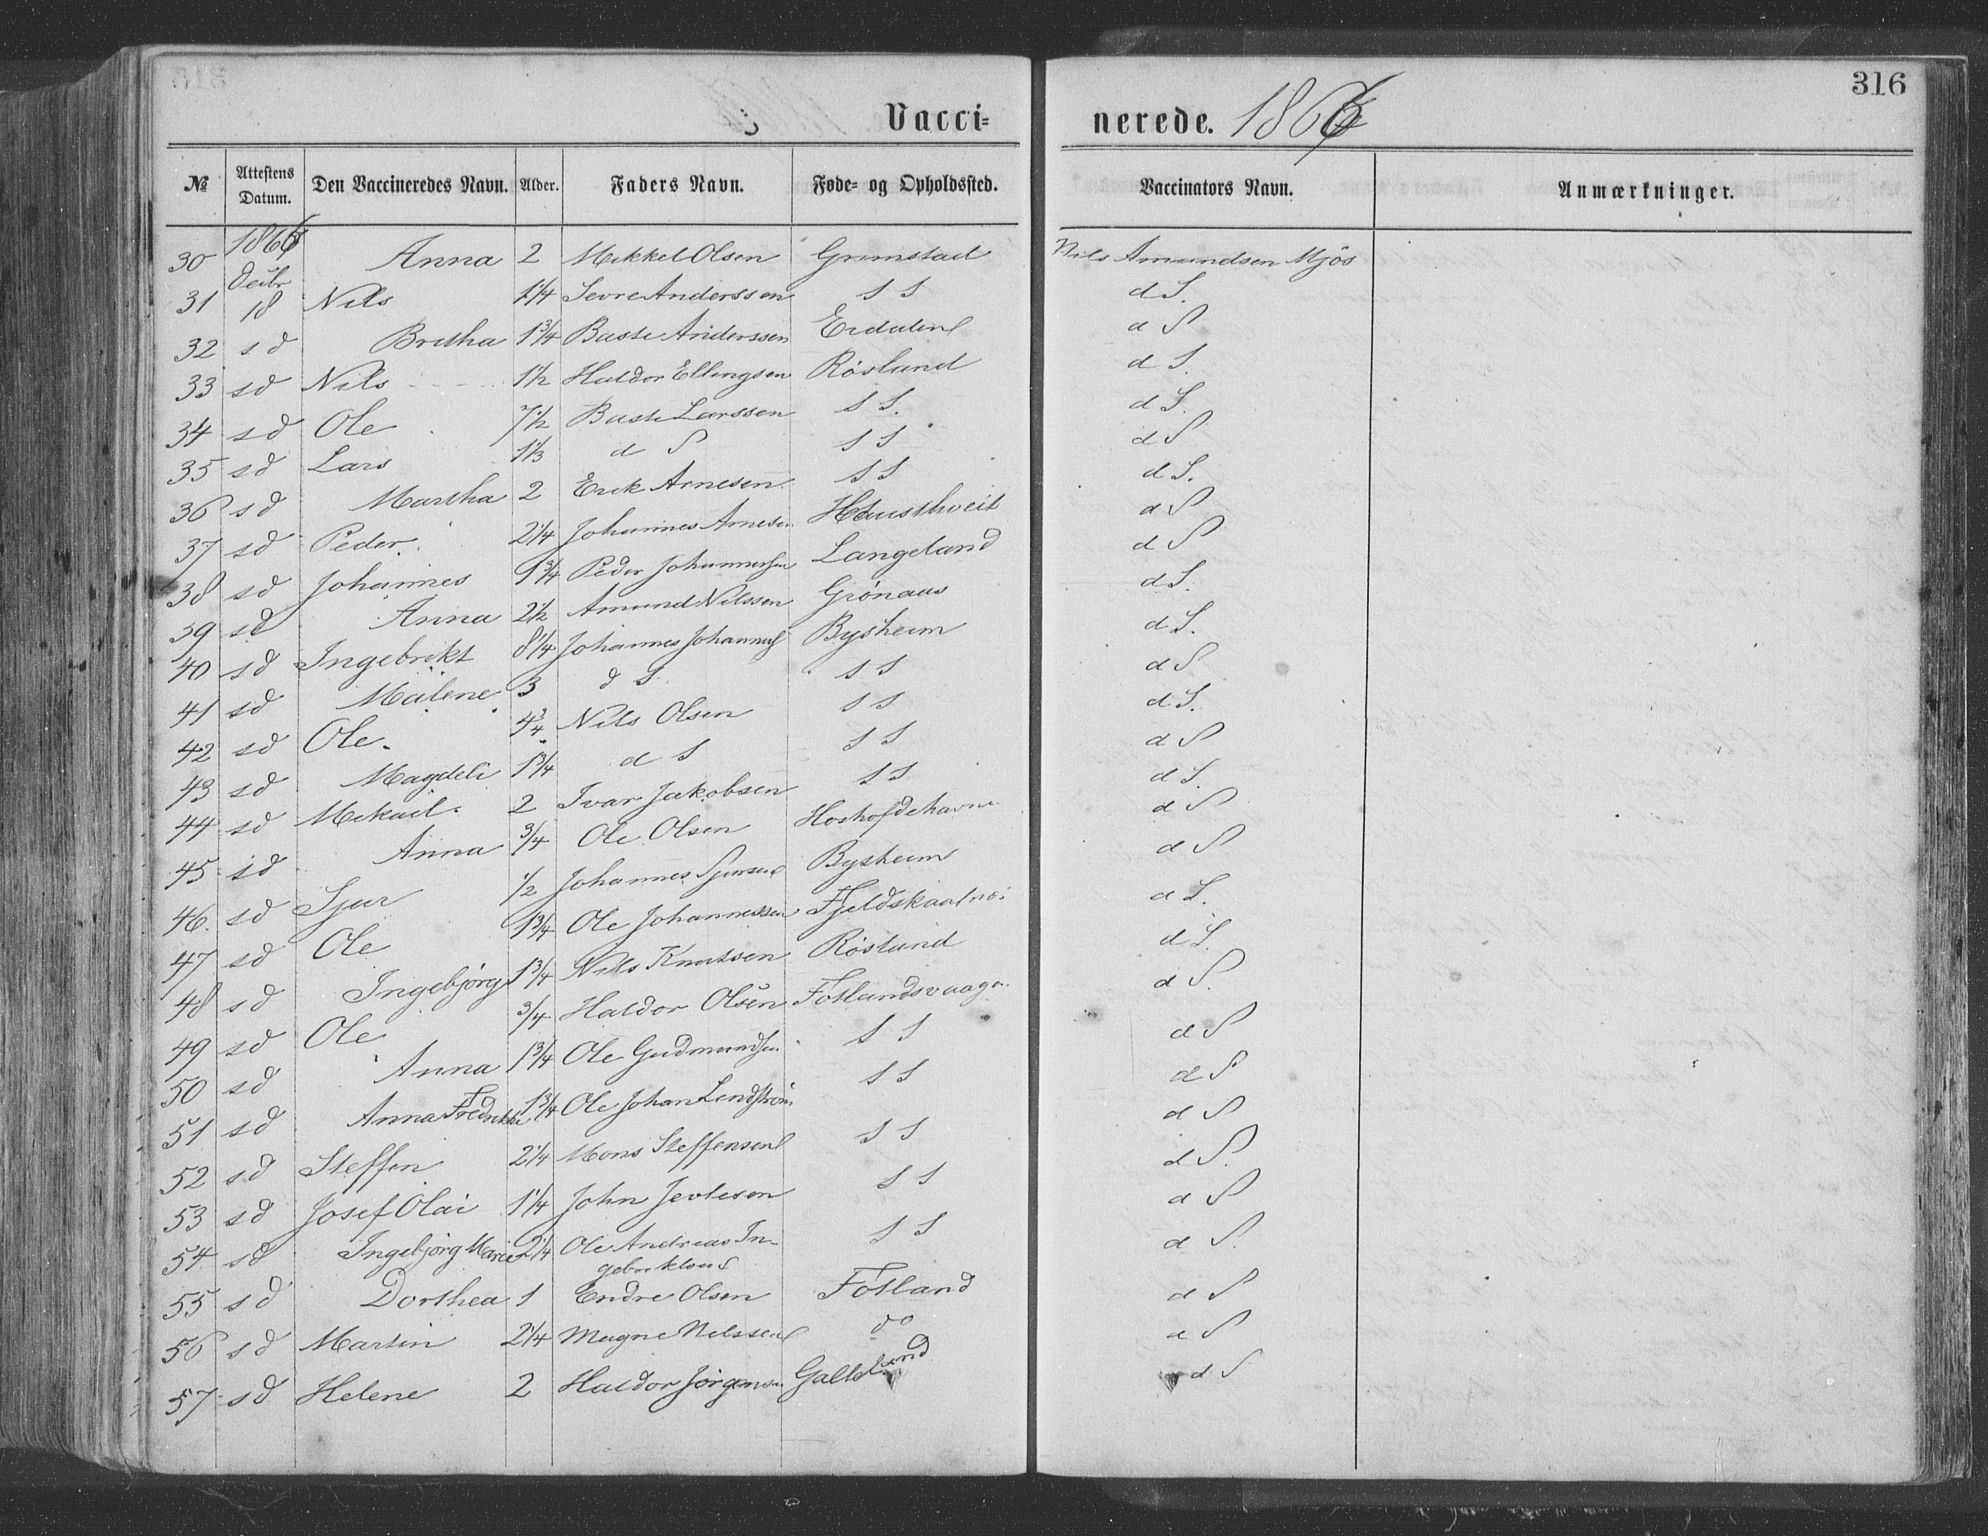 316
Vacci= nerede. 186
№ Attestens Datum. Den Vaccineredes Navn. Alder. Faders Navn. Føde= og Opholdssted. Vaccinators Navn. Anmærkninger.
30 186 Anna 2 Mikkel Olsen Grimstad Nils Amundsen Mjøs
31 18 Nils 1 1/4 Sevre Anderssen S S d S.
32 s d Britha 1 3/4 Baste Anderssen d S
33 sd Nils 1 1/2 Haldor Ellingsen Røsland d S.
34 sd Ole 7 1/2 Baste Larssen S S. d S.
35 sd Lars 1 1/3 d S S S d S
36 sd Martha 2 Erik Arnesen S S d S.
37 sd Peder 2 1/4 Johannes Arnesen Hausthveit d S
38 sd Johannes 9 3/4 Peder Johannessen Langeland d S
39 sd Anna 2 1/2 Amund Nilssen Grønaas d S.
40 sd Ingebrikt 8 1/4 Johannes Bysheim d S.
41 sd Malene 3 d S. S S d S
42 sd Ole. 4 3/4 Nils Olsen S S d S.
43 sd Magdeli 1 3/4 d S S S d S
44 sd Mikael. 2 Ivar Jakobsen S S d S.
45 sd Anna 3/4 Ole Olsen d S
46. sd Sjur 1/2 Johannes Sjursen Bysheim d S
47 sd Ole 1 3/4 Ole Johannessen d S.
48 sd Ingebjørg 1 3/4 Nils Knutsen Røsland d S.
49 sd Ole 3/4 Haldor Olsen Fotlandsvaagn d S.
50 sd Anna 1 3/4 Ole Gudmundsen S S d S
51 sd Anna Fredrikke 1 3/4 Ole Johan Lendstrøm S S d S
52 sd Steffen 2 1/4 Mons Steffensen S S d S
53 sd Josef Olai 1 1/4 John Jevtesen S S d S.
54 sd Ingebjørg Marie 2 1/4 Ole Andreas In- S S d S
gebriktsen d S.
55 sd Dorthea 1 Endre Olsen Fotland d S
56 sd Martin 2 1/4 Magne Nilssen do d S
57 sd Helene 2 Haldor Jørgensen d S